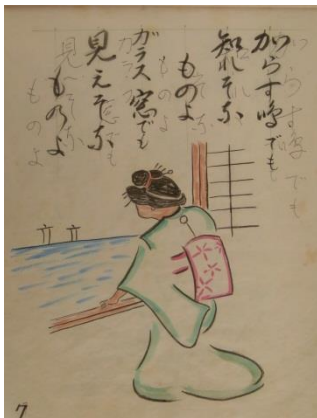 からす鳴でも
知れそな
ものよ
ガラス窓でも
見えそな
ものよ
7